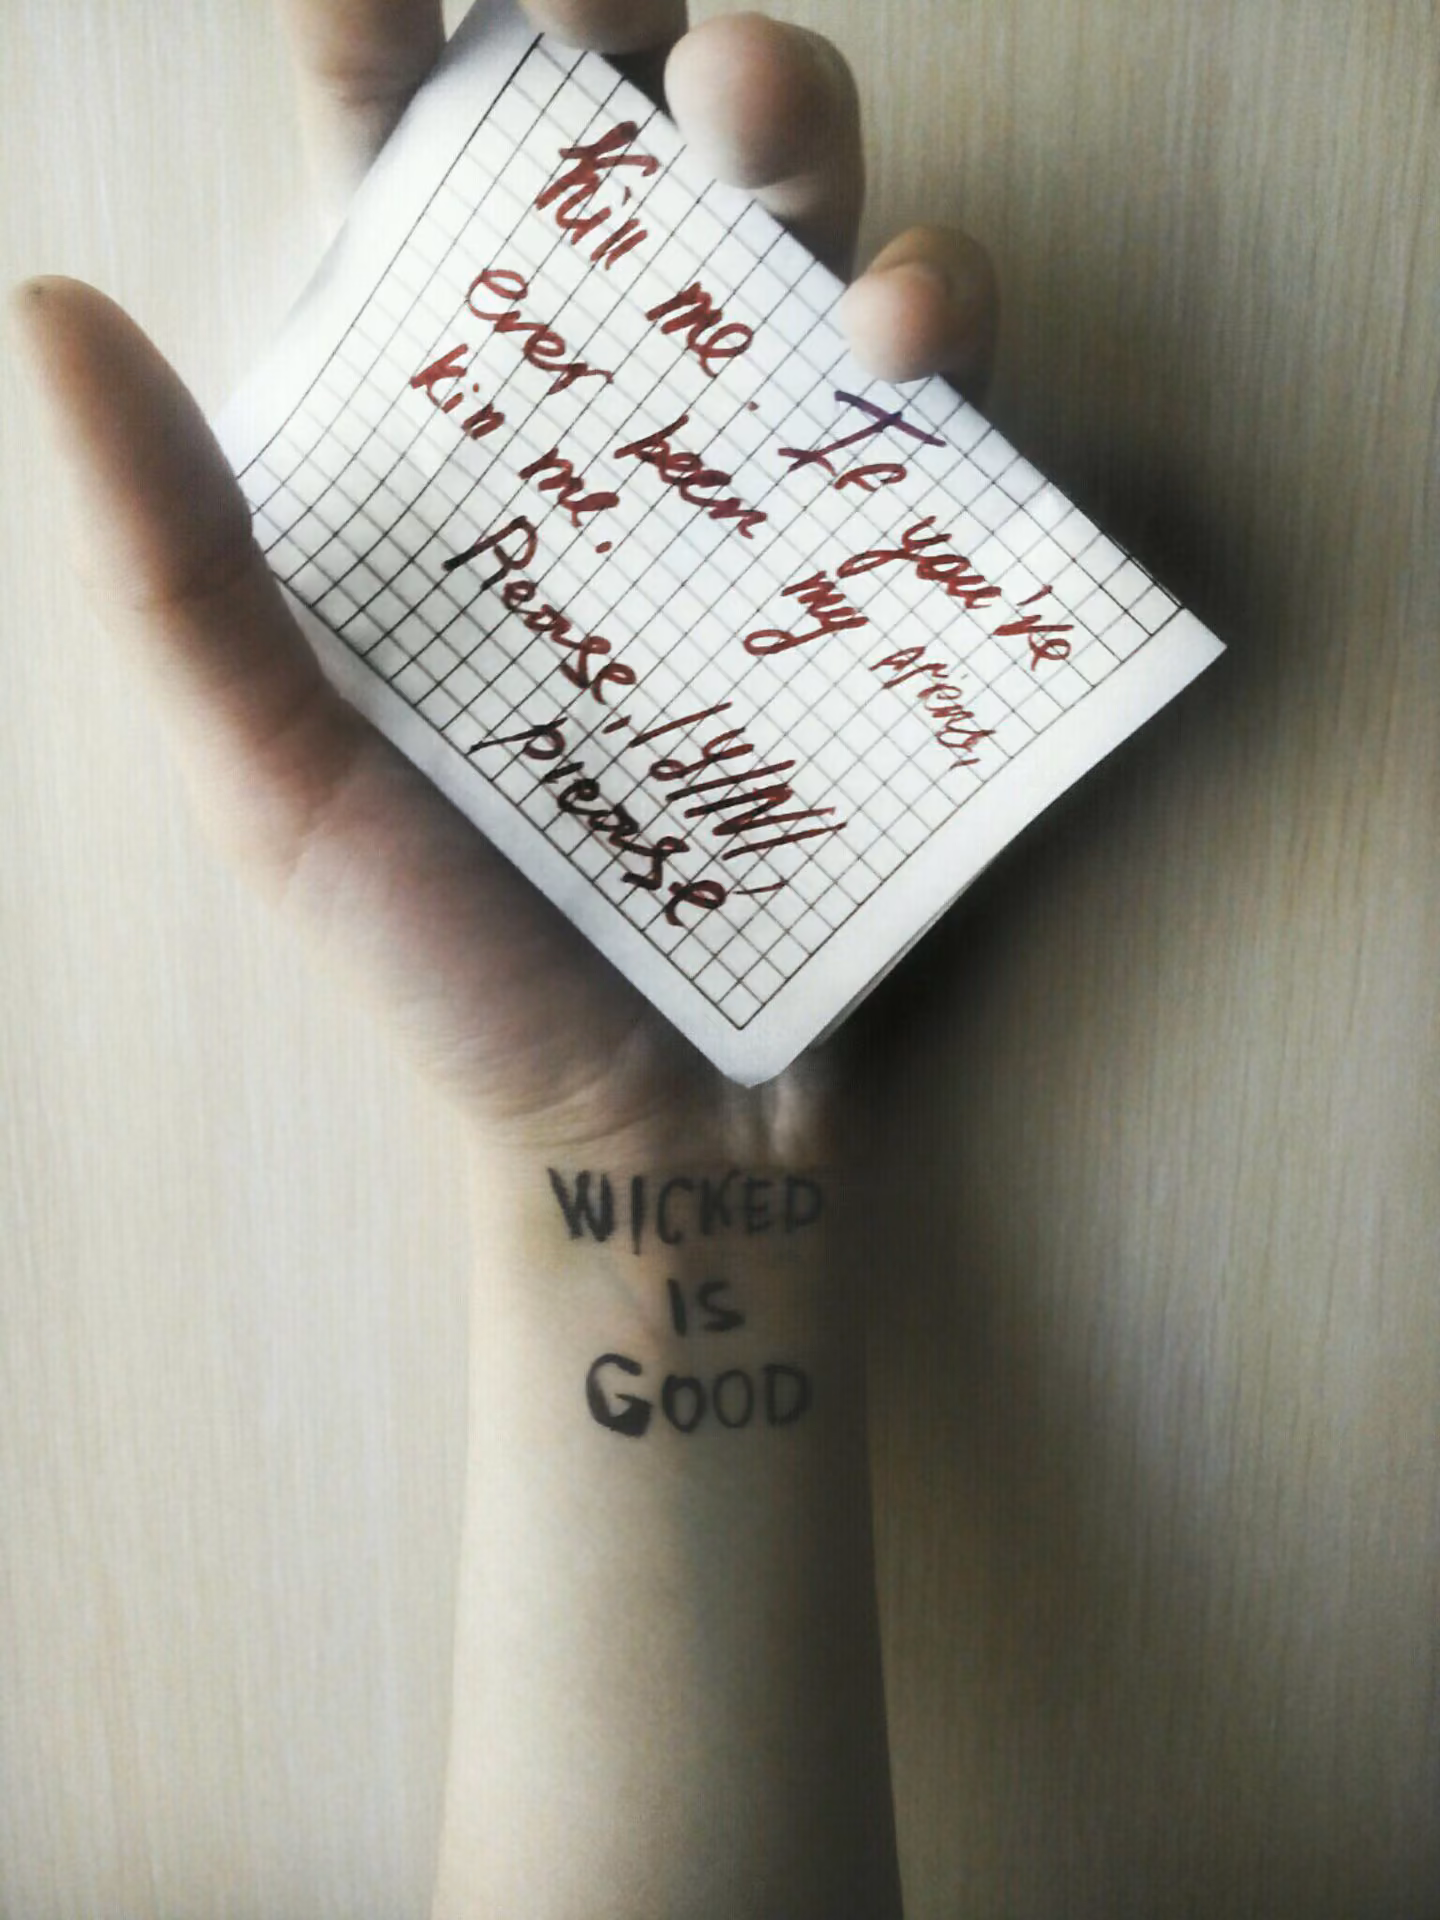 Kill me. If you've
ever been my friend,
kill me.
Please, /Y/N/,
please
WICKED
IS
GOOD